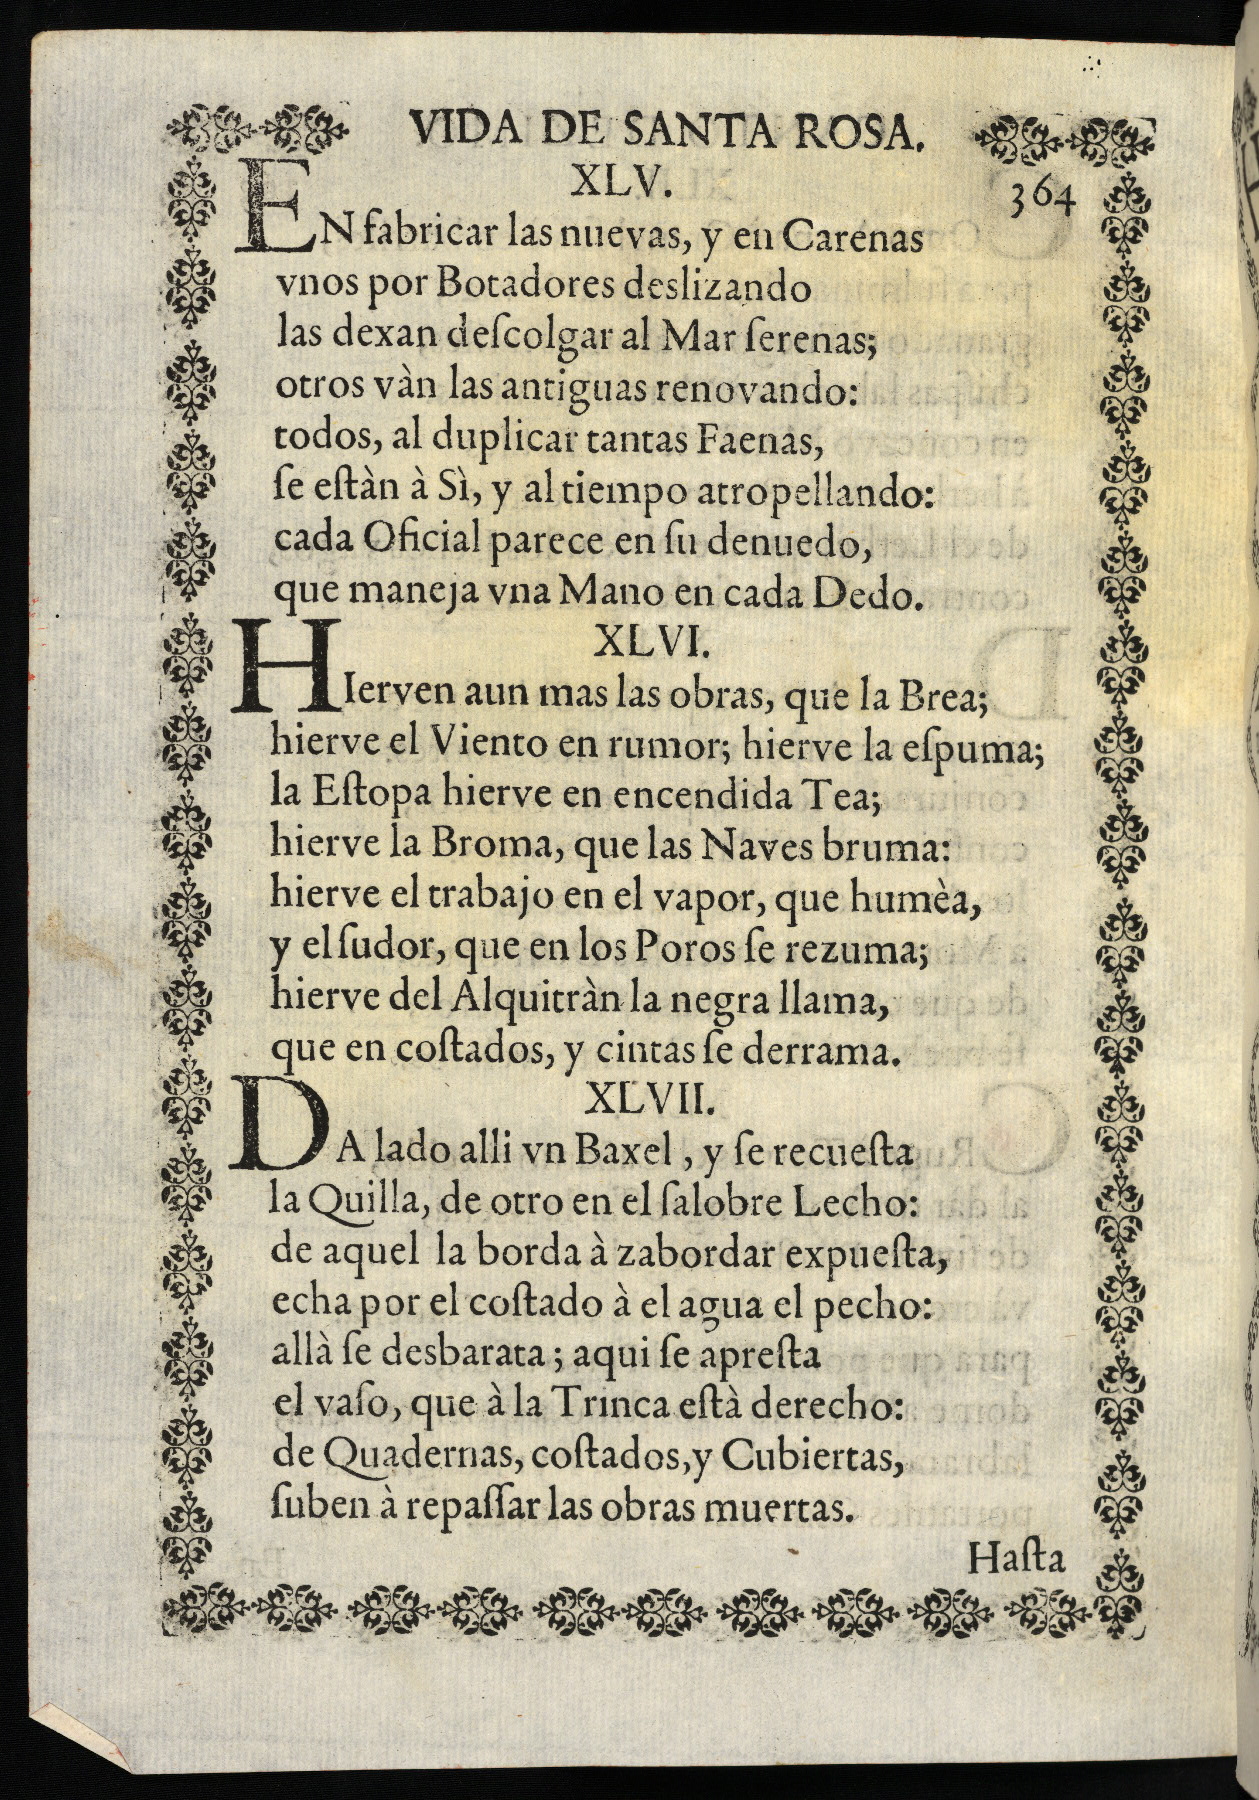 VIDA DE SANTA ROSA.
XLV.
364
EN fabricar las nuevas, y en Carenas
vnos por Botadores deslizando
las dexan deſcolgar al Mar ſerenas;
otros vàn las antiguas renovando:
todos, al duplicar tantas Faenas,
ſe eſtàn à Sì, y al tiempo atropellando:
cada Oficial parece en ſu denuedo,
que maneja vna Mano en cada Dedo.
XLVI.
HIerven aun mas las obras, que la Brea;
hierve el Viento en rumor; hierve la eſpuma;
la Eſtopa hierve en encendida Tea;
hierve la Broma, que las Naves bruma:
hierve el trabajo en el vapor, que humèa,
y el ſudor, que en los Poros ſe rezuma;
hierve del Alquitràn la negra llama,
que en coſtados, y cintas ſe derrama.
XLVII.
DA lado alli vn Baxel, y ſe recueſta
la Quilla, de otro en el ſalobre Lecho:
de aquel la borda à zabordar expueſta,
echa por el coſtado à el agua el pecho:
allà ſe desbarata; aqui ſe apreſta
el vaſo, que à la Trinca eſtà derecho:
de Quadernas, coſtados, y Cubiertas,
ſuben à repaſſar las obras muertas.
Haſta